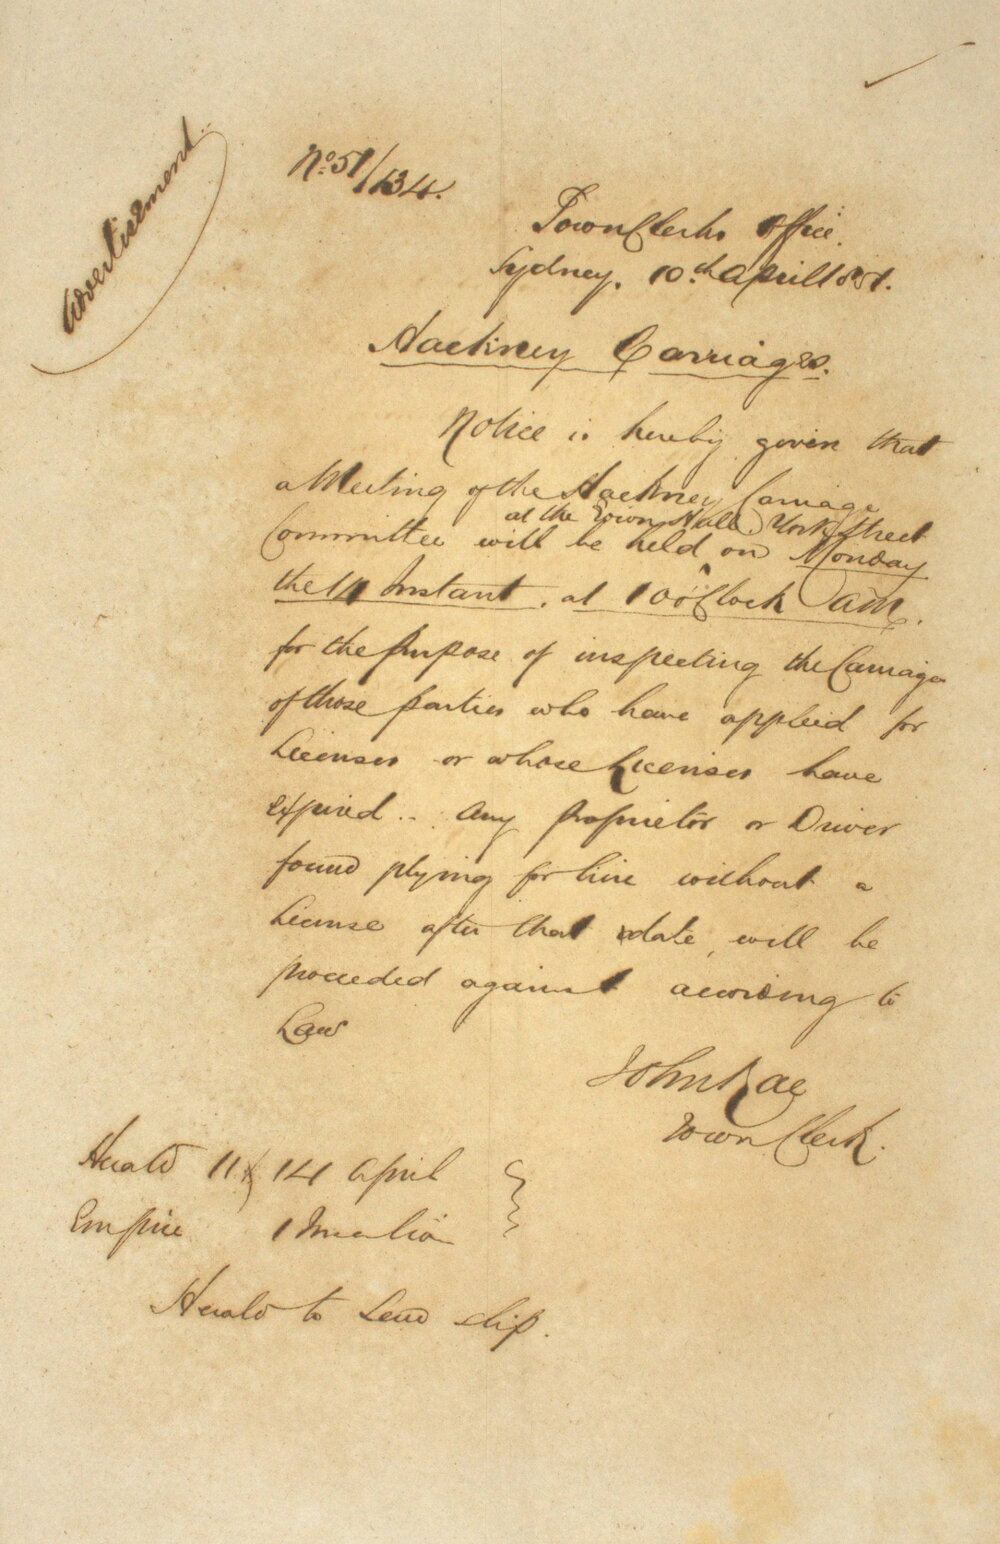 Advertisement
No. 51/134.
Town Clerks Office.
Sydney, 10th April 1851.
Hackney Carriages.
Notice is hereby given that
a Meeting of the Hackney Carriage
at the Town Hall York Street
Committee will be held on Monday
the 14 Instant, at 10 oClock am.
for the purpose of inspecting the Carriages
of those parties who have applied for
Licenses or whose Licenses have
expired.. Any Proprietor or Driver
found plying for hire without a
License after that date, will be
proceeded against according to
Law
John Rae
Town Clerk.
Herald 11 & 14 April
Empire 1 Insertion
Herald to send slip.